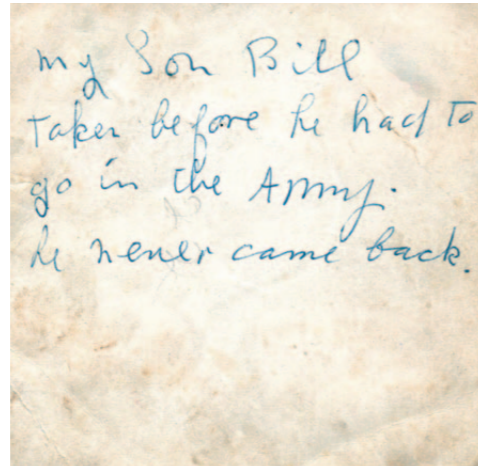 my Son Bill
taken before he had to
go in the Army.
he never came back.